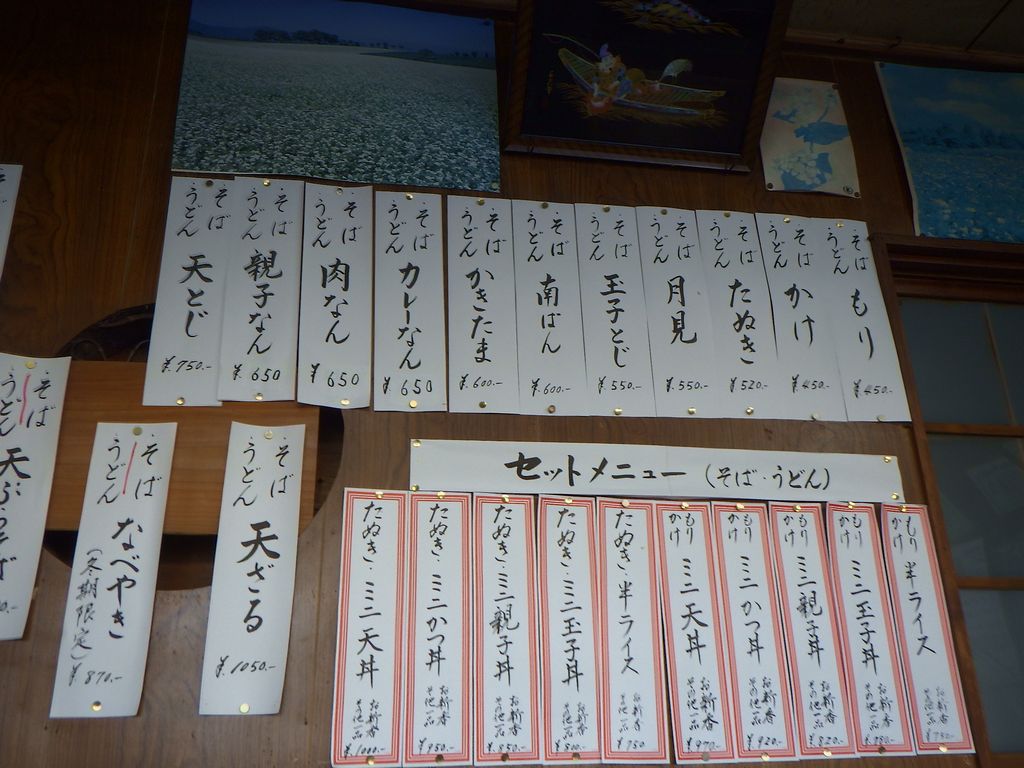 そば
うどん
もり
¥450.-
そば
うどん
かけ
¥450.-
そば
うどん
たぬき
¥520.-
そば
うどん
月見
¥550.-
そば
うどん
玉子とじ
¥550.-
そば
うどん
南ばん
¥600.-
そば
うどん
かきたま
¥600.-
そば
うどん
カレーなん
¥650
そば
うどん
肉なん
¥650
そば
うどん
親子なん
¥650
そば
うどん
天とじ
¥750.-
セットメニュー (そば・うどん)
もり
かけ
半ライス
お新香
その他一品
¥750.-
もり
かけ
ミニ玉子丼
お新香
その他一品
¥780.-
もり
かけ
ミニ親子丼
お新香
その他一品
¥820.-
もり
かけ
ミニかつ丼
お新香
その他一品
¥920.-
もり
かけ
ミニ天丼
お新香
その他一品
¥970.-
たぬき・半ライス
お新香
その他一品
¥750
たぬき・ミニ玉子丼
お新香
その他一品
¥800.-
たぬき・ミニ親子丼
お新香
その他一品
¥850.-
たぬき・ミニかつ丼
お新香
その他一品
¥950.-
たぬき・ミニ天丼
お新香
その他一品
¥1000.-
そば
うどん
天ざる
¥1050.-
そば
うどん
なべやき
(冬期限定)
¥870.-
そば
うどん